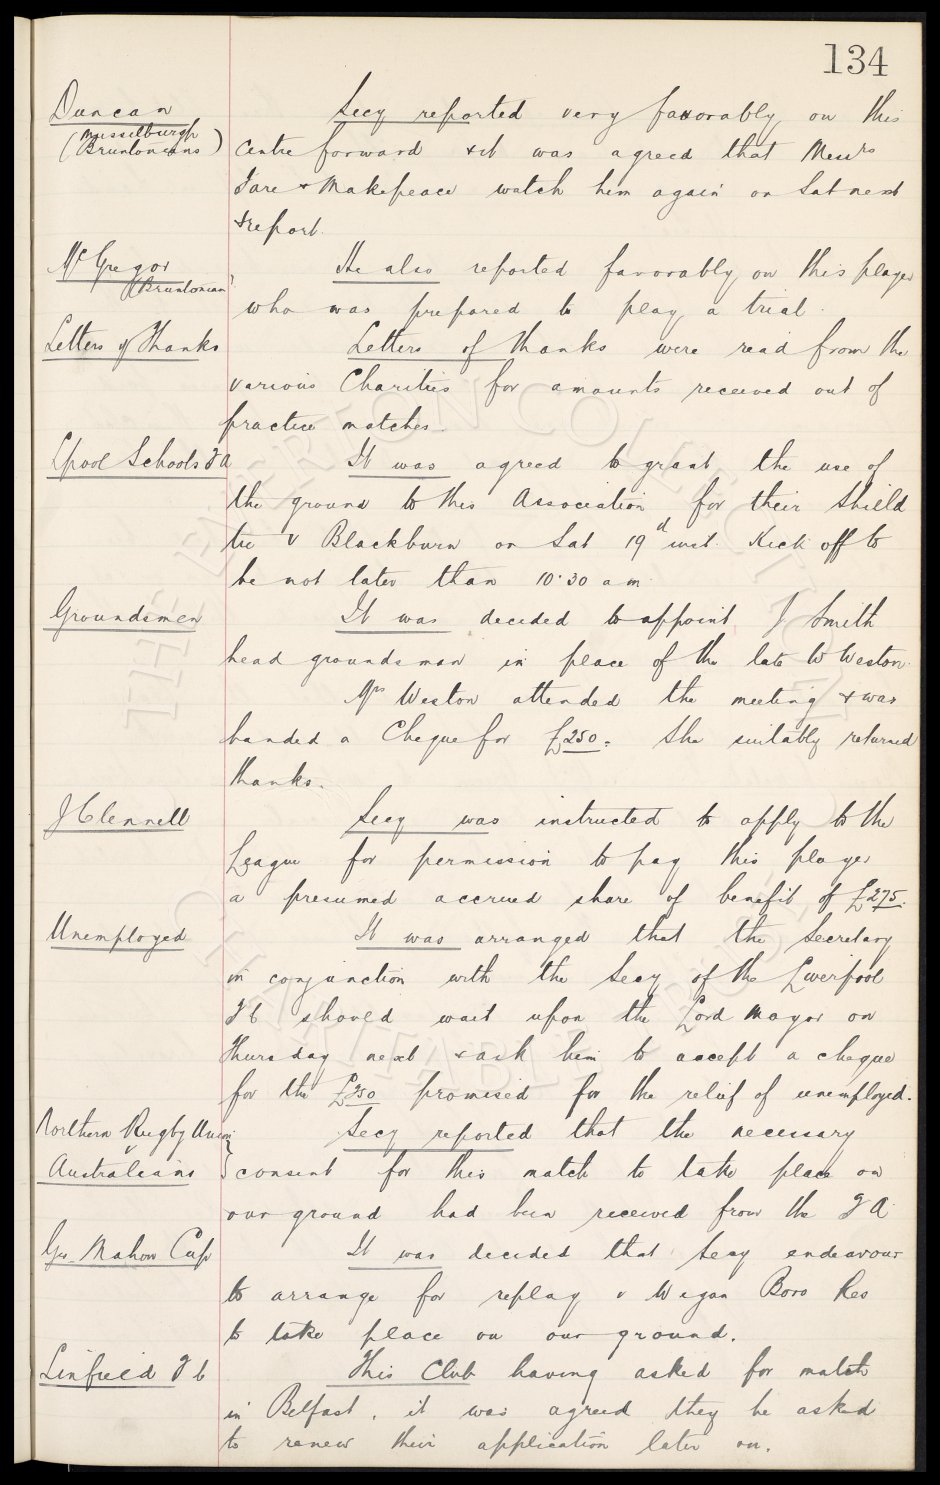 134
Duncan
(Musselburgh
Bruntonians)
Secy reported very favorably on this
centre forward & it was agreed that Messrs
Fare & Makepeace watch him again on Sat next
& report.
McGregor
(Bruntonian)
He also reported favorably on this player
who was prepared to play a trial.
Letters of Thanks
Letters of thanks were read from the
various Charities for amounts received out of
practice matches.
Lpool Schools F A
It was agreed to grant the use of
the ground to this Association for their Shield
tie v Blackburn on Sat 19th inst. Kick off to
be not later than 10.30 a m.
Groundsmen
It was decided to appoint J Smith
head groundsman in place of the late W Weston.
Mrs Weston attended the meeting & was
handed a Cheque for £250. She suitably returned
thanks.
J Clennell
Secy was instructed to apply to the
League for permission to pay this player
a presumed accrued share of benefit of £275.
Unemployed
It was arranged that the Secretary
in conjunction with the Secy of the Liverpool
F C should wait upon the Lord Mayor on
Thursday next & ask him to accept a cheque
for the £250 promised for the relief of unemployed.
Northern Rugby Union
v
Australians
Secy reported that the necessary
consent for this match to take place on
our ground had been received from the F A.
Geo. Mahon Cup
It was decided that Secy endeavour
to arrange for replay v Wigan Boro Res
to take place on our ground.
Linfield F C
This Club having asked for match
in Belfast, it was agreed they be asked
to renew their application later on.
THE EVERTON COLLECTION
CHARITABLE TRUST